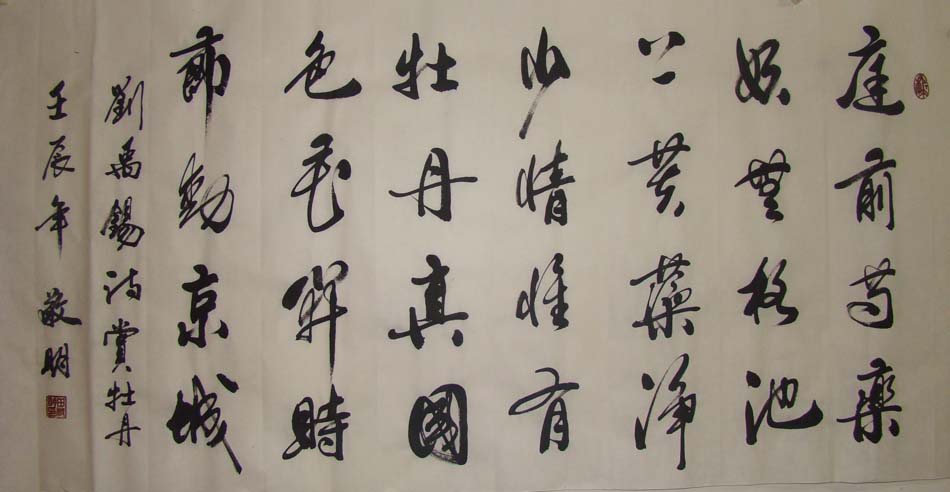 庭前芍藥
妖無格池
上芙蕖淨
少情惟有
牡丹真國
色花開時
節動京城
劉禹錫詩賞牡丹
壬辰年 敬明